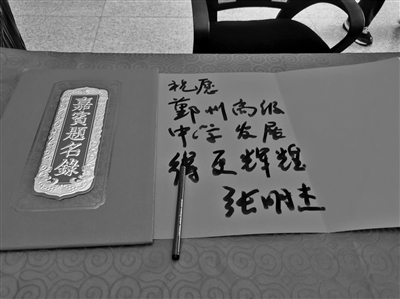 嘉賓題名錄
祝愿
鄭州高级
中学发展
得更辉煌
张明杰